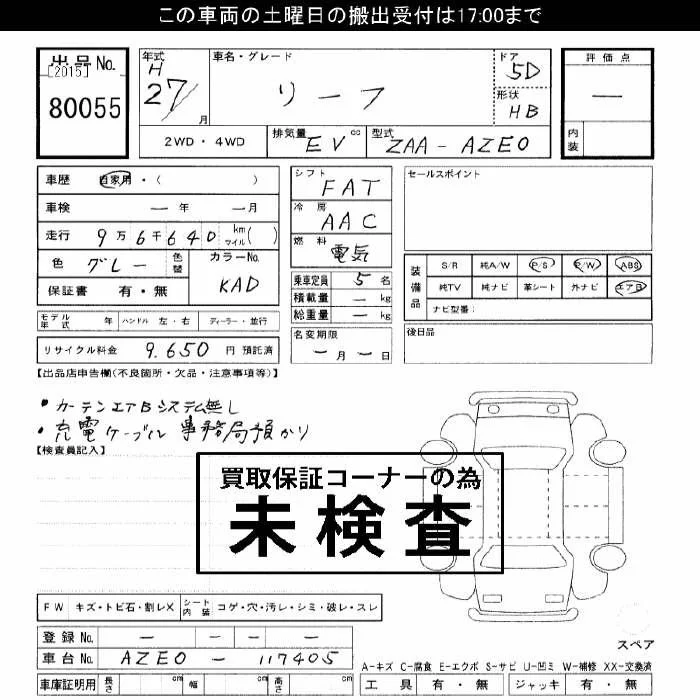 この車両の土曜日の搬出受付は17:00まで
出品No. [2015] 80055
年式 H 27/ 月
車名・グレード リーフ
ドア 5D
形状 HB
評価点 —
内装
2WD・4WD
排気量 EV cc
型式 ZAA-AZE0
車歴 自家用・( )
車検 — 年 — 月
走行 9万6千640 km マイル( )
色 グレー 色替
カラーNo. KAD
保証書 有・無
シフト FAT
冷房 AAC
燃料 電気
乗車定員 5 名
積載量 — kg
総重量 — kg
セールスポイント
装備品 S/R 純A/W P/S P/W ABS
純TV 純ナビ 革シート 外ナビ エアB
ナビ型番:
モデル年式 年 ハンドル 左・右 ディーラー・並行
名変期限 — 月 — 日
後日品
リサイクル料金 9.650 円 預託済
【出品店申告欄(不良箇所・欠品・注意事項等)】
・カーテンエアBシステム無し
・充電ケーブル 事務局預かり
【検査員記入】
買取保証コーナーの為
未検査
FW キズ・トビ石・割レX シート内装 コゲ・穴・汚レ・シミ・破レ・スレ
登録No. — —
車台No. AZE0 - 117405
車庫証明用 長さ cm 幅 cm 高さ cm
スペア
A-キズ C-腐食 E-エクボ S-サビ U-凹ミ W-補修 XX-交換済
工具 有・無 ジャッキ 有・無